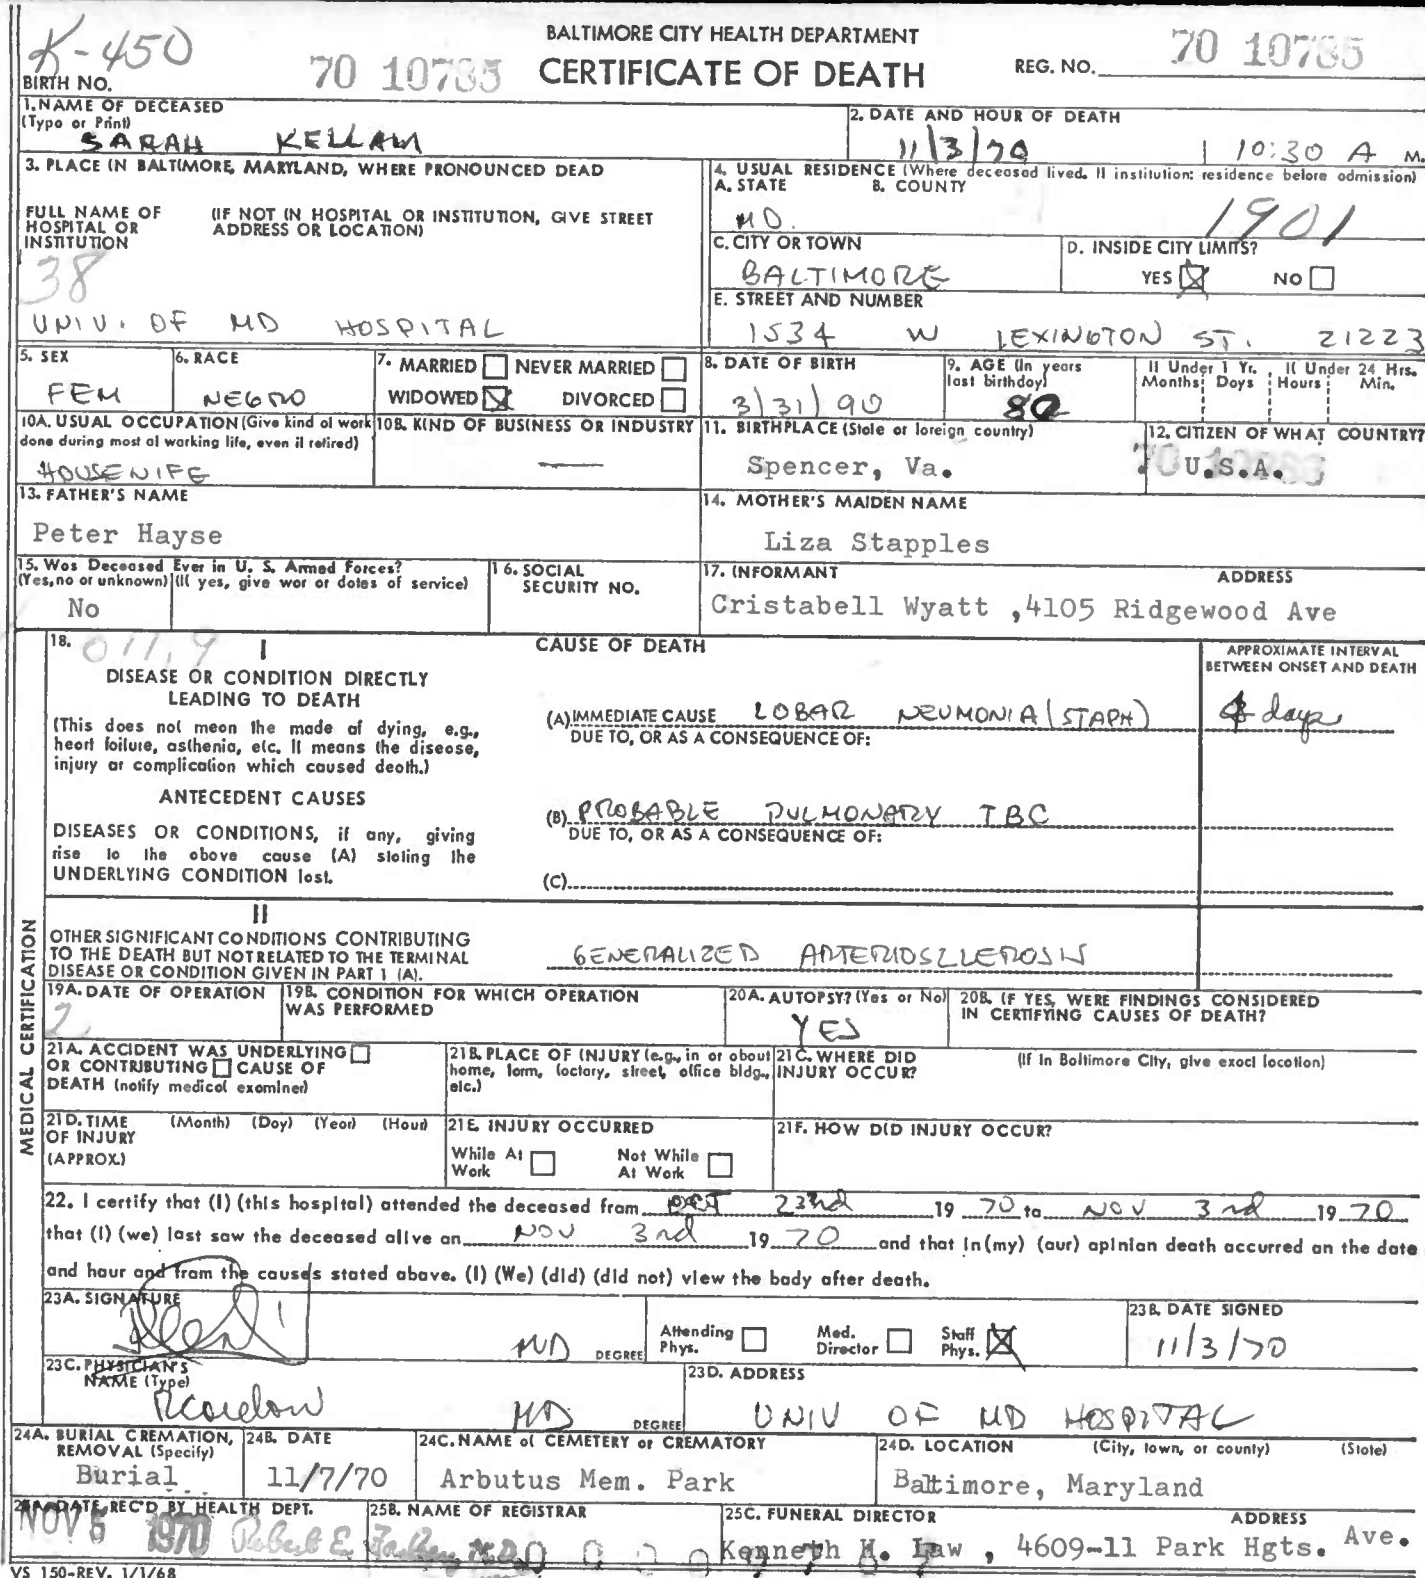 K-450
BALTIMORE CITY HEALTH DEPARTMENT
BIRTH NO. 70 10785 CERTIFICATE OF DEATH REG. NO. 70 10785
1. NAME OF DECEASED
(Type or Print)
SARAH KELLAM
2. DATE AND HOUR OF DEATH
11/3/70 10:30 A M.
3. PLACE IN BALTIMORE, MARYLAND, WHERE PRONOUNCED DEAD
FULL NAME OF HOSPITAL OR INSTITUTION
(IF NOT IN HOSPITAL OR INSTITUTION, GIVE STREET ADDRESS OR LOCATION)
38
UNIV. OF MD HOSPITAL
4. USUAL RESIDENCE (Where deceased lived. If institution: residence before admission)
A. STATE B. COUNTY
MD. 1901
C. CITY OR TOWN
BALTIMORE
D. INSIDE CITY LIMITS?
YES NO
E. STREET AND NUMBER
1534 W LEXINGTON ST. 21223
5. SEX
FEM
6. RACE
NEGRO
7. MARRIED NEVER MARRIED
WIDOWED DIVORCED
8. DATE OF BIRTH
3/31/90
9. AGE (In years last birthday)
80
If Under 1 Yr. If Under 24 Hrs.
Months Days Hours Min.
10A. USUAL OCCUPATION (Give kind of work done during most of working life, even if retired)
HOUSEWIFE
10B. KIND OF BUSINESS OR INDUSTRY
—
11. BIRTHPLACE (State or foreign country)
Spencer, Va.
12. CITIZEN OF WHAT COUNTRY?
U.S.A.
13. FATHER'S NAME
Peter Hayse
14. MOTHER'S MAIDEN NAME
Liza Stapples
15. Was Deceased Ever in U. S. Armed Forces?
(Yes, no or unknown) (If yes, give war or dates of service)
No
16. SOCIAL SECURITY NO.
17. INFORMANT ADDRESS
Cristabell Wyatt ,4105 Ridgewood Ave
MEDICAL CERTIFICATION
18. 011.9
I
CAUSE OF DEATH
APPROXIMATE INTERVAL BETWEEN ONSET AND DEATH
DISEASE OR CONDITION DIRECTLY LEADING TO DEATH
(This does not mean the mode of dying, e.g., heart failure, asthenia, etc. It means the disease, injury or complication which caused death.)
(A) IMMEDIATE CAUSE LOBAR NEUMONIA (STAPH) days
DUE TO, OR AS A CONSEQUENCE OF:
ANTECEDENT CAUSES
DISEASES OR CONDITIONS, if any, giving rise to the above cause (A) stating the UNDERLYING CONDITION last.
(B) PROBABLE PULMONARY TBC
DUE TO, OR AS A CONSEQUENCE OF:
(C)
II
OTHER SIGNIFICANT CONDITIONS CONTRIBUTING TO THE DEATH BUT NOT RELATED TO THE TERMINAL DISEASE OR CONDITION GIVEN IN PART 1 (A).
GENERALIZED ARTERIOSCLEROSIS
19A. DATE OF OPERATION
2
19B. CONDITION FOR WHICH OPERATION WAS PERFORMED
20A. AUTOPSY? (Yes or No)
YES
20B. IF YES, WERE FINDINGS CONSIDERED IN CERTIFYING CAUSES OF DEATH?
21A. ACCIDENT WAS UNDERLYING OR CONTRIBUTING CAUSE OF DEATH (notify medical examiner)
21B. PLACE OF INJURY (e.g., in or about home, farm, factory, street, office bldg., etc.)
21C. WHERE DID INJURY OCCUR? (If in Baltimore City, give exact location)
21D. TIME OF INJURY (APPROX.) (Month) (Day) (Year) (Hour)
21E. INJURY OCCURRED
While At Work Not While At Work
21F. HOW DID INJURY OCCUR?
22. I certify that (I) (this hospital) attended the deceased from OCT 23rd 19 70 to NOV 3rd 19 70
that (I) (we) last saw the deceased alive on NOV 3rd 19 70 and that in (my) (our) opinion death occurred on the date
and hour and from the causes stated above. (I) (We) (did) (did not) view the body after death.
23A. SIGNATURE
MD DEGREE
Attending Phys. Med. Director Staff Phys.
23B. DATE SIGNED
11/3/70
23C. PHYSICIAN'S NAME (Type)
MD DEGREE
23D. ADDRESS
UNIV OF MD HOSPITAL
24A. BURIAL CREMATION, REMOVAL (Specify)
Burial
24B. DATE
11/7/70
24C. NAME of CEMETERY or CREMATORY
Arbutus Mem. Park
24D. LOCATION (City, town, or county) (State)
Baltimore, Maryland
25A. DATE REC'D BY HEALTH DEPT.
NOV 5 1970
25B. NAME OF REGISTRAR
Robert E. Farber, M.D.
25C. FUNERAL DIRECTOR ADDRESS
Kenneth H. Law , 4609-11 Park Hgts. Ave.
VS 150-REV. 1/1/68